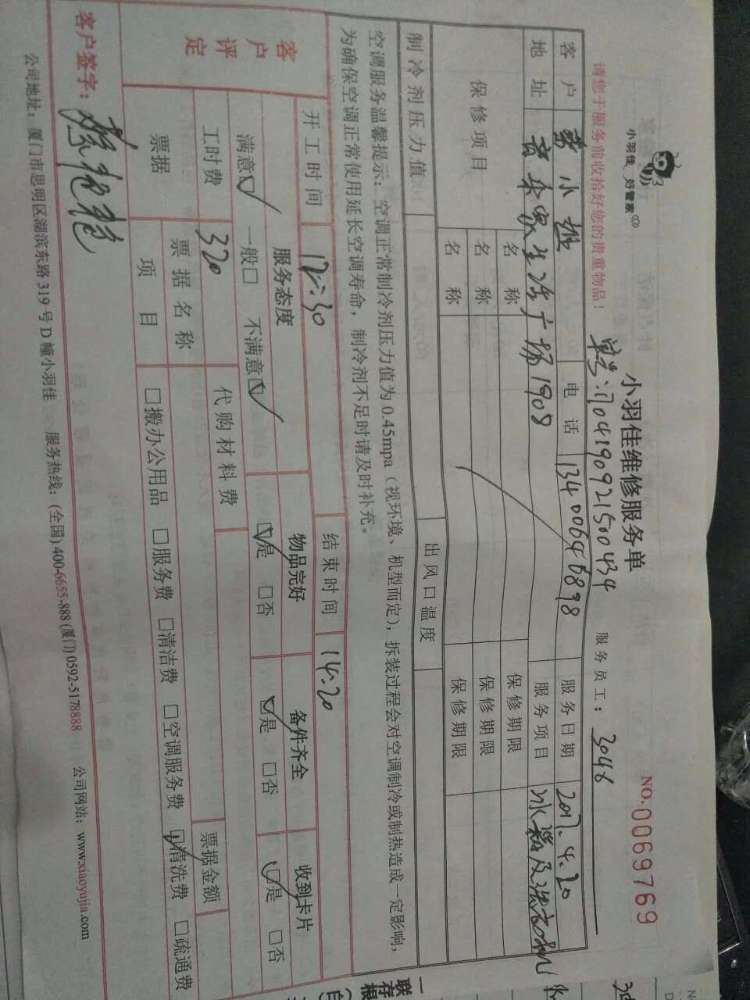 小羽佳 好管家
小羽佳维修服务单
NO.0069769
请您于服务前收拾好您的贵重物品!
单号:1704190921500434
服务员工: 3046
客户 小姐 电话 13400640898 服务日期 2017.4.20
地址 音乐家生活广场1908 服务项目 冰箱及洗衣机
保修项目 名称 保修期限
名称 保修期限
名称 保修期限
制冷剂压力值 出风口温度
空调服务温馨提示:空调正常制冷剂压力值为0.45mpa(视环境、机型而定),拆装过程会对空调制冷或制热造成一定影响,
为确保空调正常使用延长空调寿命,制冷剂不足时请及时补充。
开工时间 12:30 结束时间 14:20
客户评定 服务态度 物品完好 备件齐全 收到卡片
满意☑ 一般☐ 不满意☑ ☑是 ☐否 ☑是 ☐否 ☑是 ☐否
工时费 320 代购材料费 票据金额
票据 票据名称
项目 ☐搬办公用品 ☐服务费 ☐清洁费 ☐空调服务费 ☑清洗费 ☐疏通费
客户签字:
公司地址:厦门市思明区湖滨东路319号D幢小羽佳 服务热线:(全国)400-6655-888(厦门)0592-5178888 公司网站:www.xiaoyujia.com
一联存根